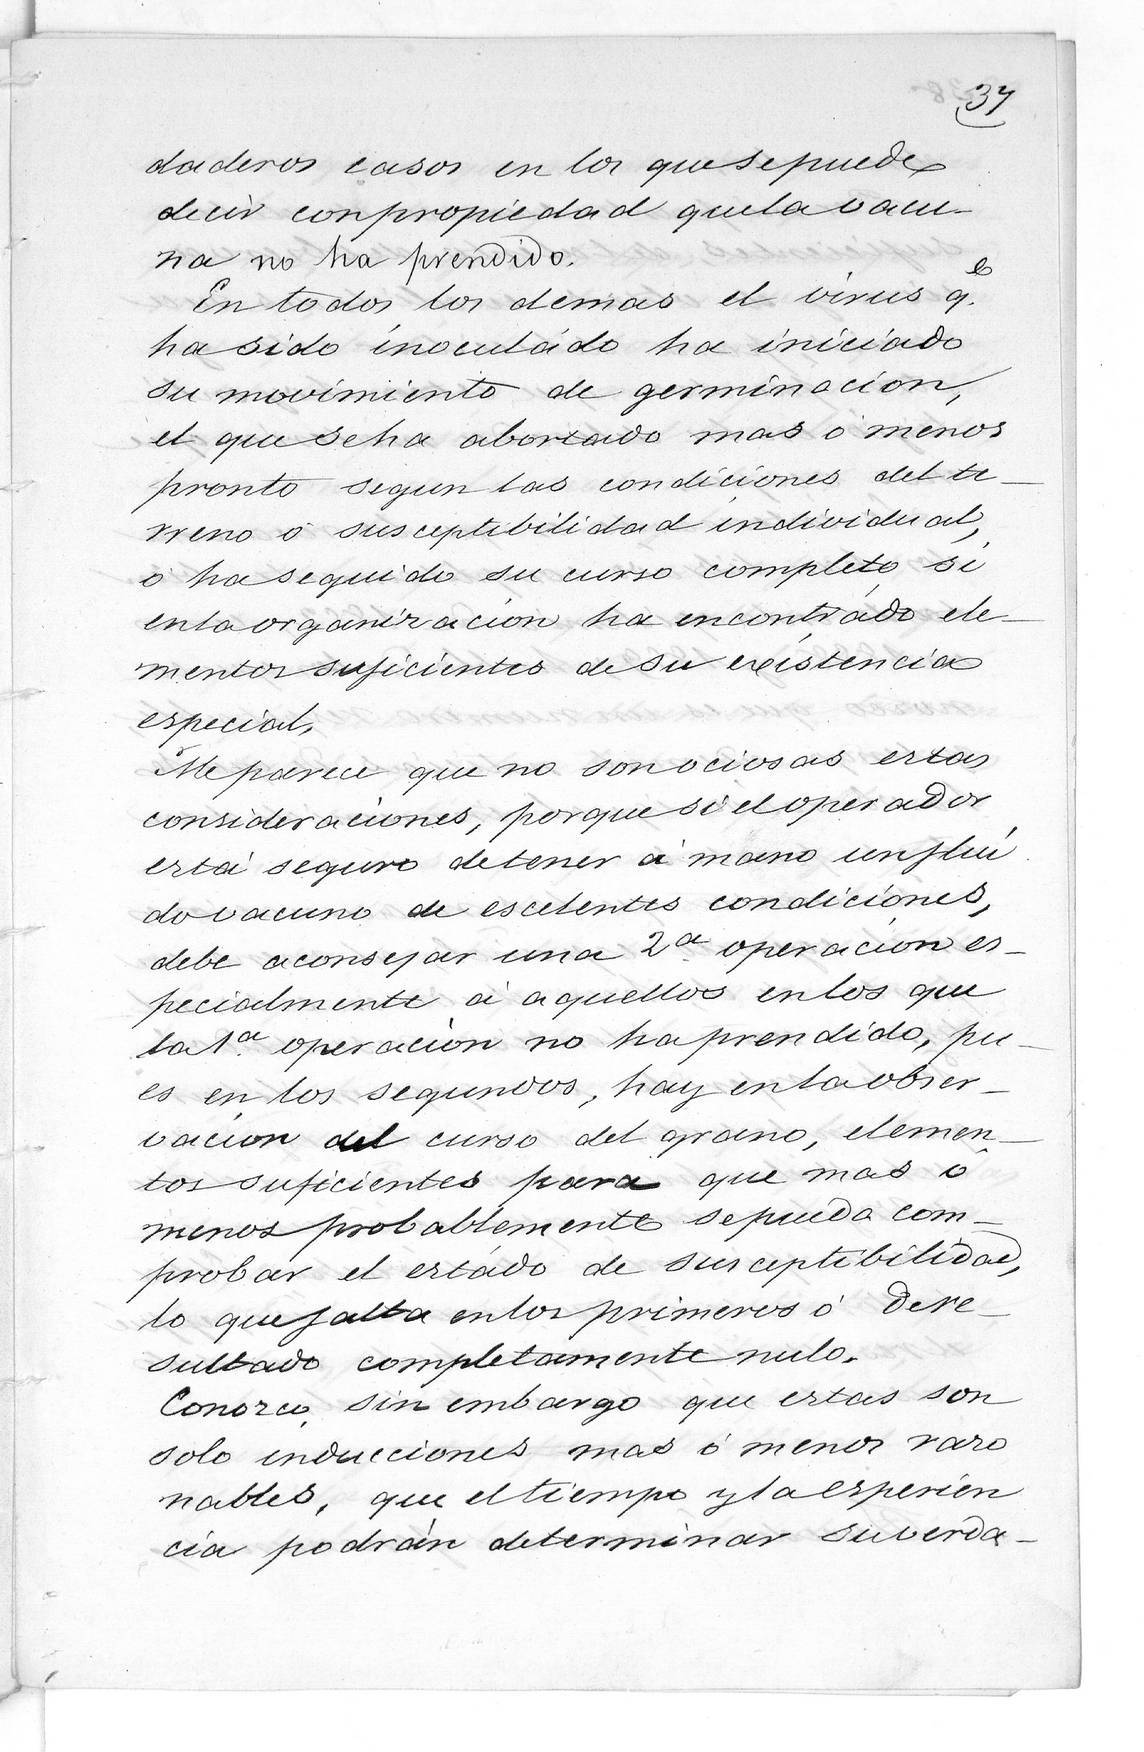 37
daderos casos en los que se puede
decir con propiedad que la vacu-
na no ha prendido.
En todos los demas el virus q.e
ha sido inoculádo ha iniciado
su movimiento de germinacion,
el que se ha abortado mas ó menos
pronto segun las condiciones del te-
rreno ó susceptibilidad individual,
ó ha seguido su curso completo si
en la organizacion ha encontrádo ele-
mentos suficientes de su existencia
especial.
Me parece que no son ociosas estas
consideraciones, porque si el operador
está seguro de tener á mano un flúi
do vacuno de escelentes condiciones,
debe aconsejar una 2.a operacion es-
pecialmente á aquellos en los que
la 1.a operacion no ha prendido, pu-
es en los segundos, hay en la obser-
vacion del curso del grano, elemen-
tos suficientes para que mas ó
menos probablemente se pueda com-
probar el estádo de susceptibilidad,
lo que falta en los primeros ó de re-
sultado completamente nulo.
Conozco, sin embargo que estas son
solo inducciones mas ó menos razo
nables, que el tiempo y la esperien
cia podrán determinar su verda-